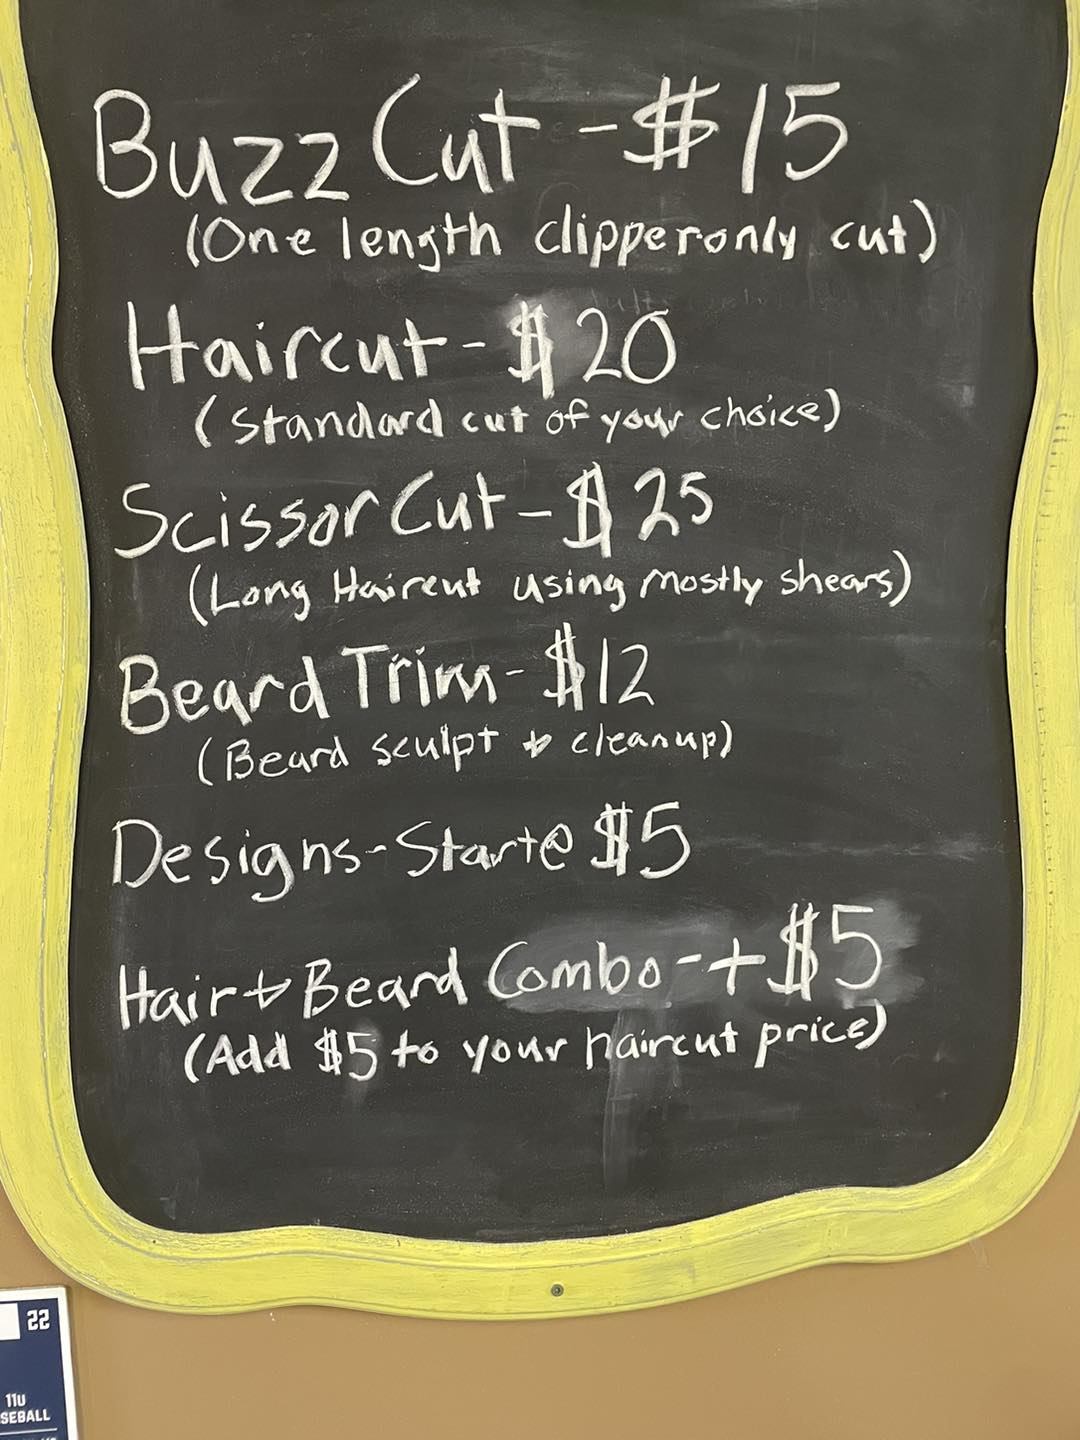 Buzz Cut - $15
(One length clipper only cut)
Haircut - $20
(Standard cut of your choice)
Scissor Cut - $25
(Long Haircut using mostly shears)
Beard Trim - $12
(Beard sculpt + cleanup)
Designs - Start @ $5
Hair + Beard Combo - + $5
(Add $5 to your haircut price)
22
11U
SEBALL